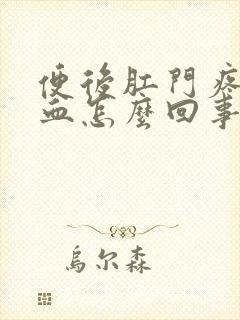 便後肛門疼
血怎麼回事
烏尔森